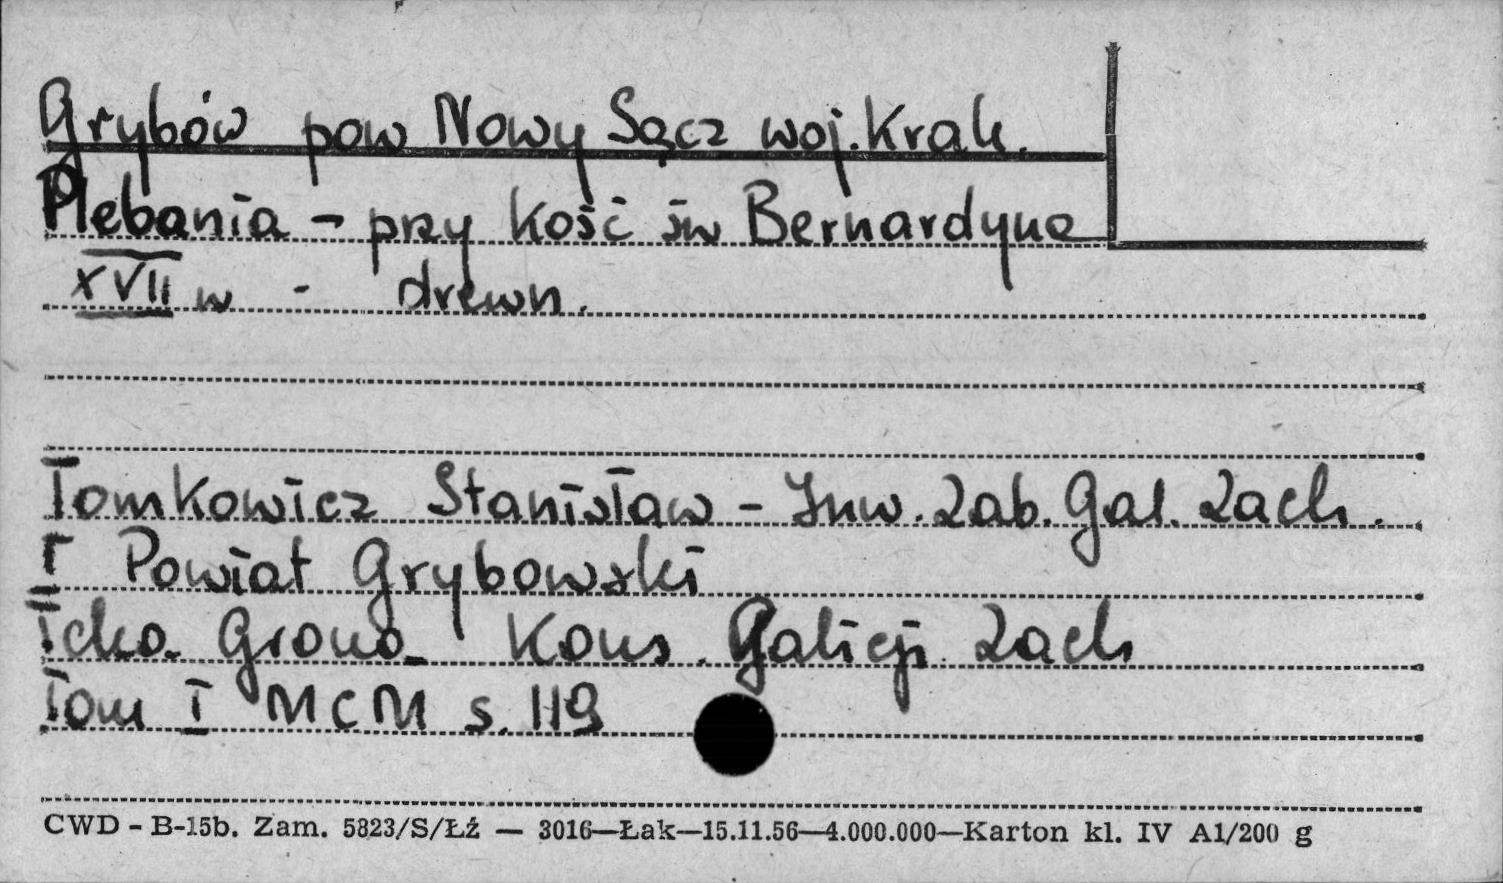 Grybów pow Nowy Sącz woj. Krak.
Plebania - przy kość św Bernardyna
XVII w - drewn.
Tomkowicz Stanisław - Inw. Zab. Gal. Zach.
I Powiat Grybowski
Teka Grona Kons. Galicji Zach
Tom I MCM s. 119
CWD - B-15b. Zam. 5823/S/Łź — 3016—Łak—15.11.56—4.000.000—Karton kl. IV A1/200 g